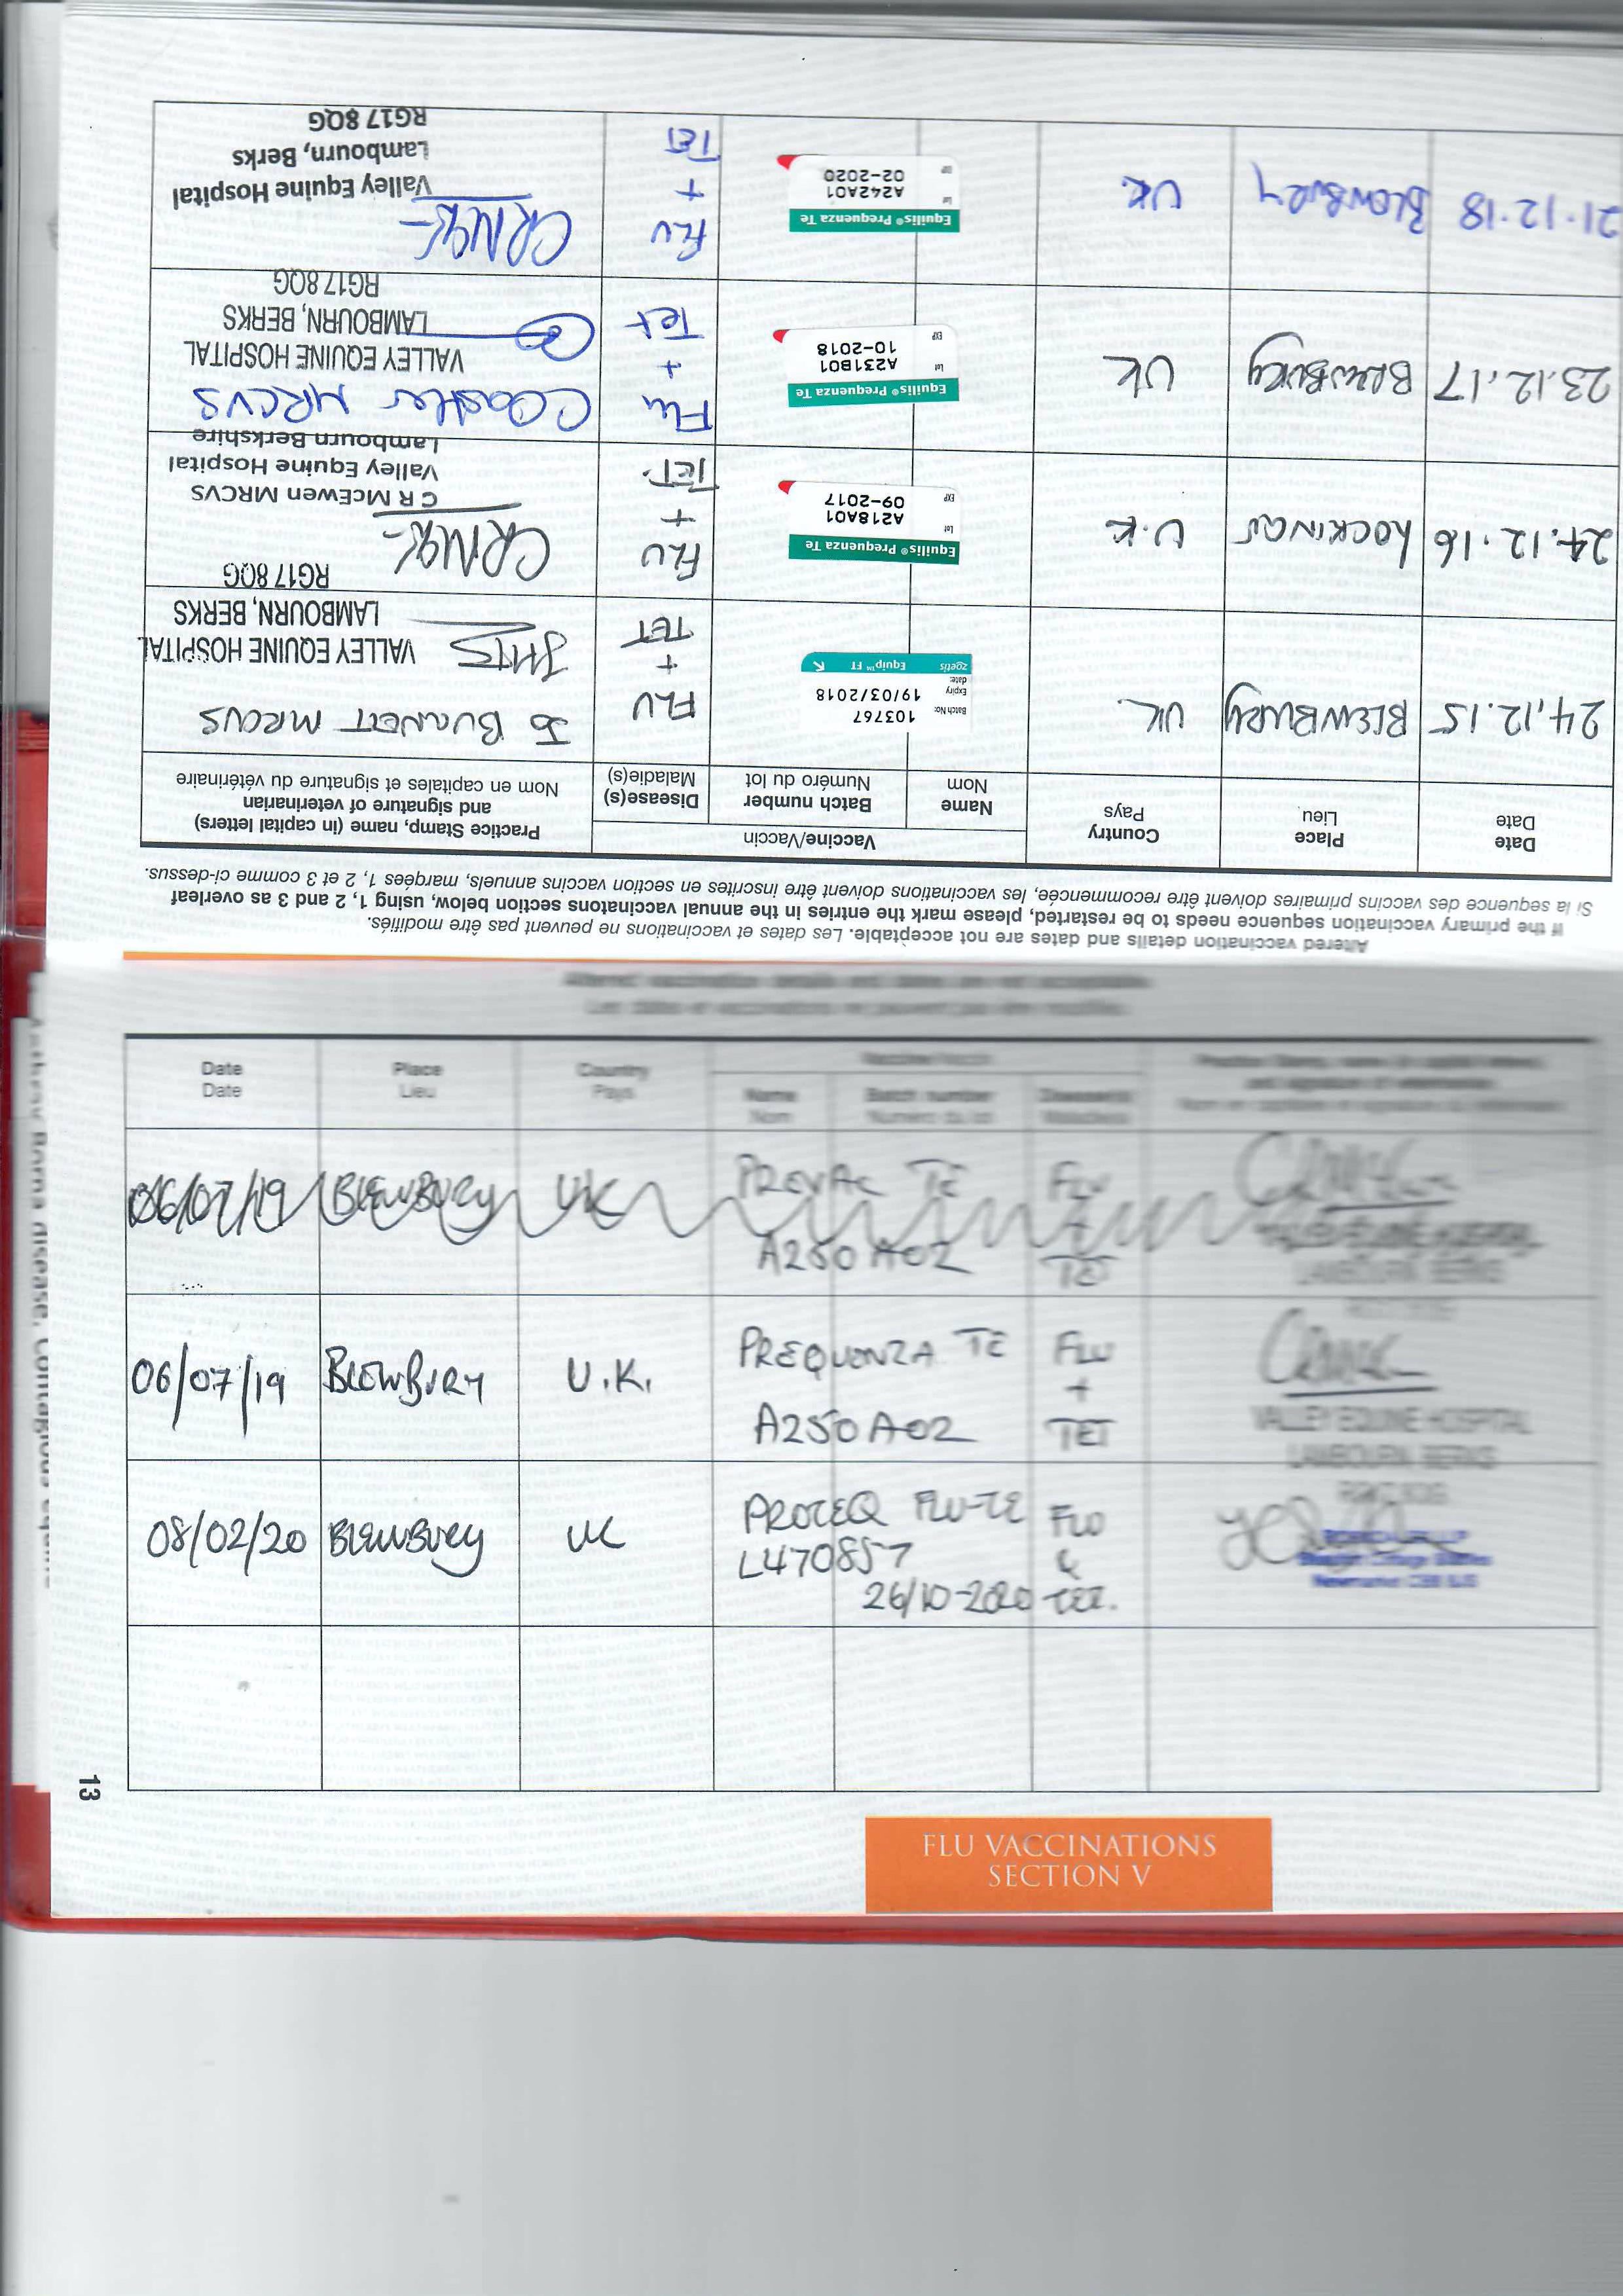 Altered vaccination details and dates are not acceptable. Les dates et vaccinations ne peuvent pas être modifiés.
If the primary vaccination sequence needs to be restarted, please mark the entries in the annual vaccinatons section below, using 1, 2 and 3 as overleaf
Si la sequence des vaccins primaires doivent être recommencée, les vaccinations doivent être inscrites en section vaccins annuels, margées 1, 2 et 3 comme ci-dessus.
Date
Date
Place
Lieu
Country
Pays
Vaccine/Vaccin
Name
Nom
Batch number
Numéro du lot
Disease(s)
Maladie(s)
Practice Stamp, name (in capital letters)
and signature of veterinarian
Nom en capitales et signature du vétérinaire
24.12.15 BLEWBURY UK
Batch No: 103767
Expiry date: 19/03/2018
zoetis Equip™ FT
FLU
+
TET
MRCVS
VALLEY EQUINE HOSPITAL
LAMBOURN, BERKS
RG17 8QG
24.12.16 LOCKINGE U.K
Equilis® Prequenza Te
Lot A218A01
EXP 09-2017
FLU
+
TET.
C R McEwen MRCVS
Valley Equine Hospital
Lambourn Berkshire
23.12.17 BLEWBURY UK
Equilis® Prequenza Te
Lot A231B01
EXP 10-2018
Flu
+
Tet
MRCVS
VALLEY EQUINE HOSPITAL
LAMBOURN, BERKS
RG17 8QG
21.12.18 BLEWBURY UK
Equilis® Prequenza Te
Lot A242A01
EXP 02-2020
FLU
+
TET
Valley Equine Hospital
Lambourn, Berks
RG17 8QG
Altered vaccination details and dates are not acceptable.
Les dates et vaccinations ne peuvent pas être modifiés.
Date
Date
Place
Lieu
Country
Pays
Name
Nom
Batch number
Numéro du lot
06/07/19 BLEWBURY UK PREVAC TE FLU
+
A250A02 TET
LAMBOURN, BERKS
06/07/19 BLEWBURY U.K. PREQUENZA TE FLU
+
A250A02 TET
VALLEY EQUINE HOSPITAL
LAMBOURN, BERKS
08/02/20 BLEWBURY UK PROTEQ FLU-TE FLU
L470857 &
26/10-2020 TET.
13
FLU VACCINATIONS
SECTION V